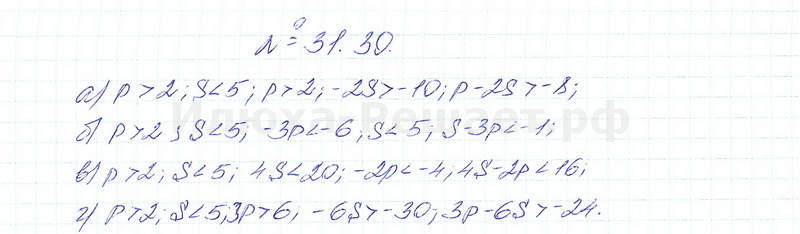 № 31.30.
а) p > 2; S < 5; p > 2; -2S > -10; p - 2S > -8;
б) p > 2; S < 5; -3p < -6; S < 5; S - 3p < -1;
Илюха-Решает.рф
в) p > 2; S < 5; 4S < 20; -2p < -4; 4S - 2p < 16;
г) p > 2; S < 5; 3p > 6; -6S > -30; 3p - 6S > -24.